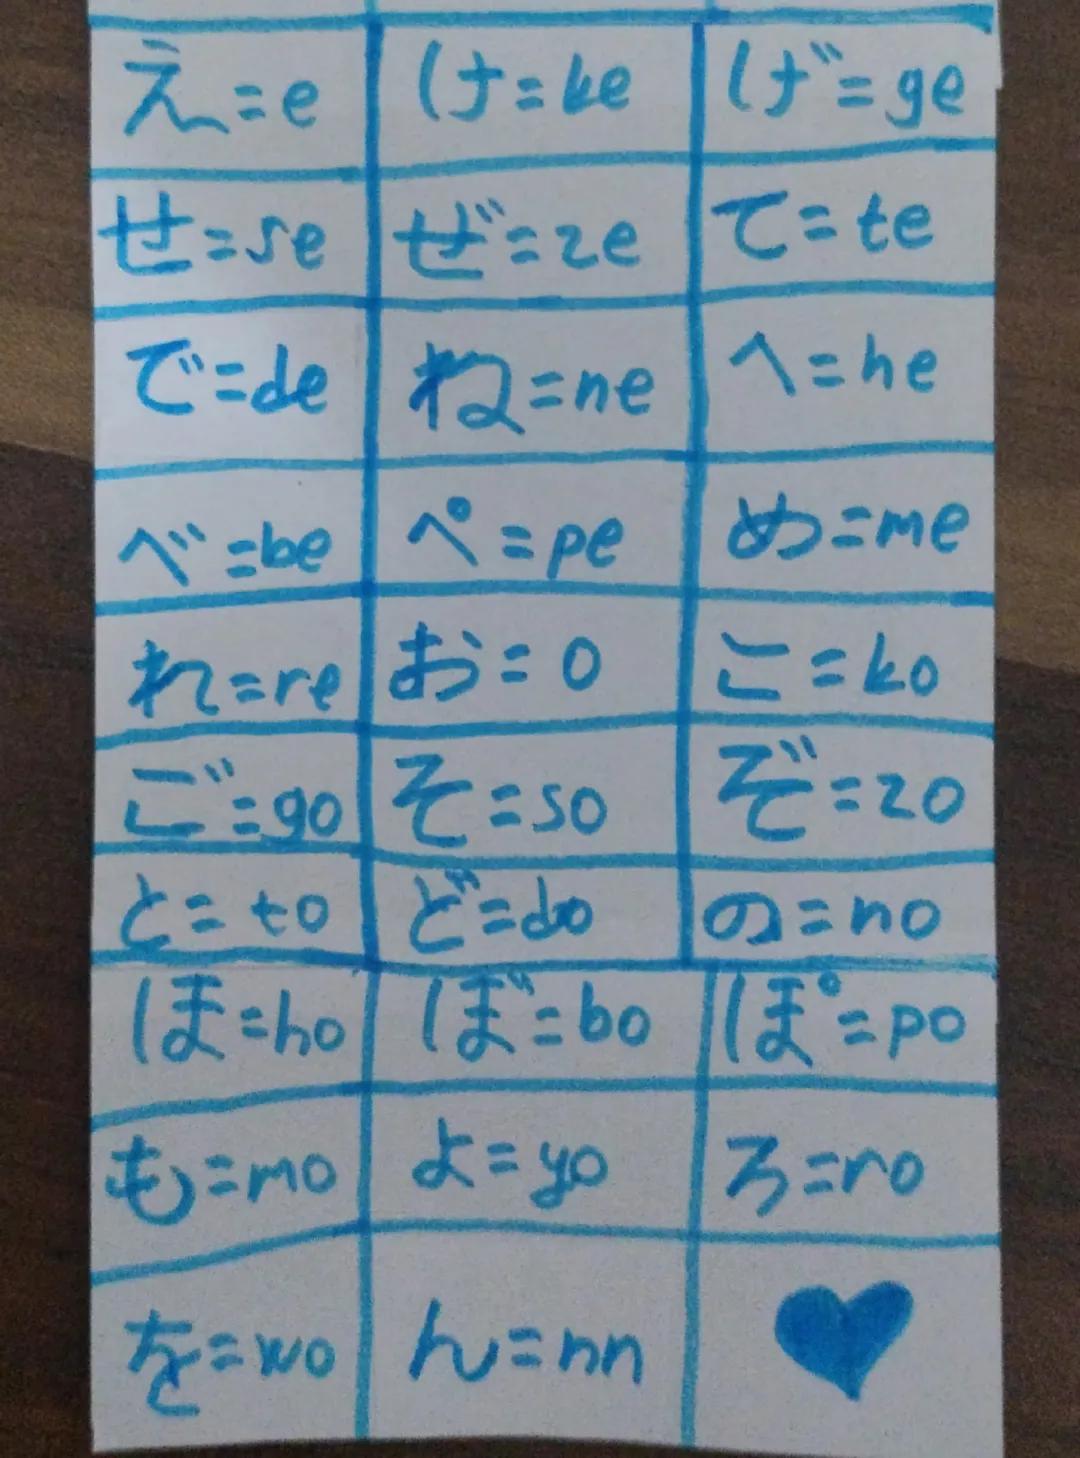 え=e け=ke げ=ge
せ=se ぜ=ze て=te
で=de ね=ne へ=he
べ=be ぺ=pe め=me
れ=re お=o こ=ko
ご=go そ=so ぞ=zo
と=to ど=do の=no
ほ=ho ぼ=bo ぽ=po
も=mo よ=yo ろ=ro
を=wo ん=nn